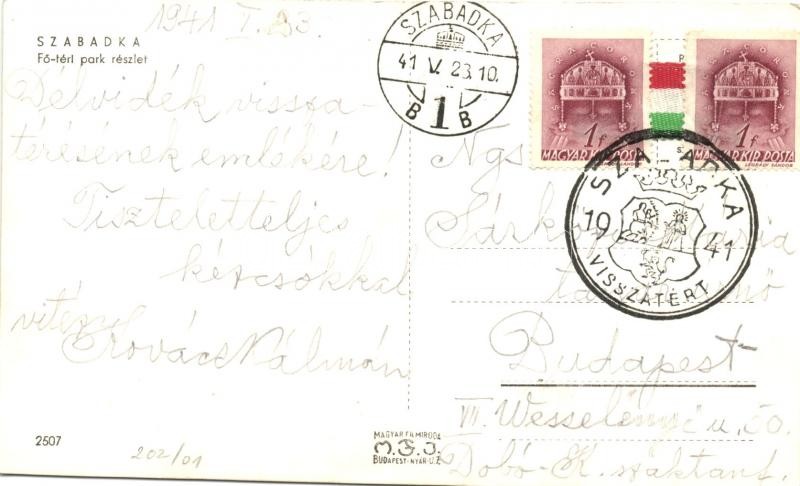 1941 I. 23.
SZABADKA
Fő-téri park részlet
Délvidék vissza-
térésének emlékére!
Tiszteletteljes
kézcsókkal
vitéz
Kovács Kálmán
2507
202/01
MAGYAR FILMIRODA
M.F.I.
BUDAPEST-NYÁR-U.
SZABADKA
41 V. 23.10.
B 1 B
SZENT KORONA
1f
MAGYAR KIR. POSTA
1f
MAGYAR KIR. POSTA
SZABADKA
1941
VISSZATÉRT
Ngs
Mária
Budapest
VII. Wesselényi u. 50.
Dobó-K. száktant.